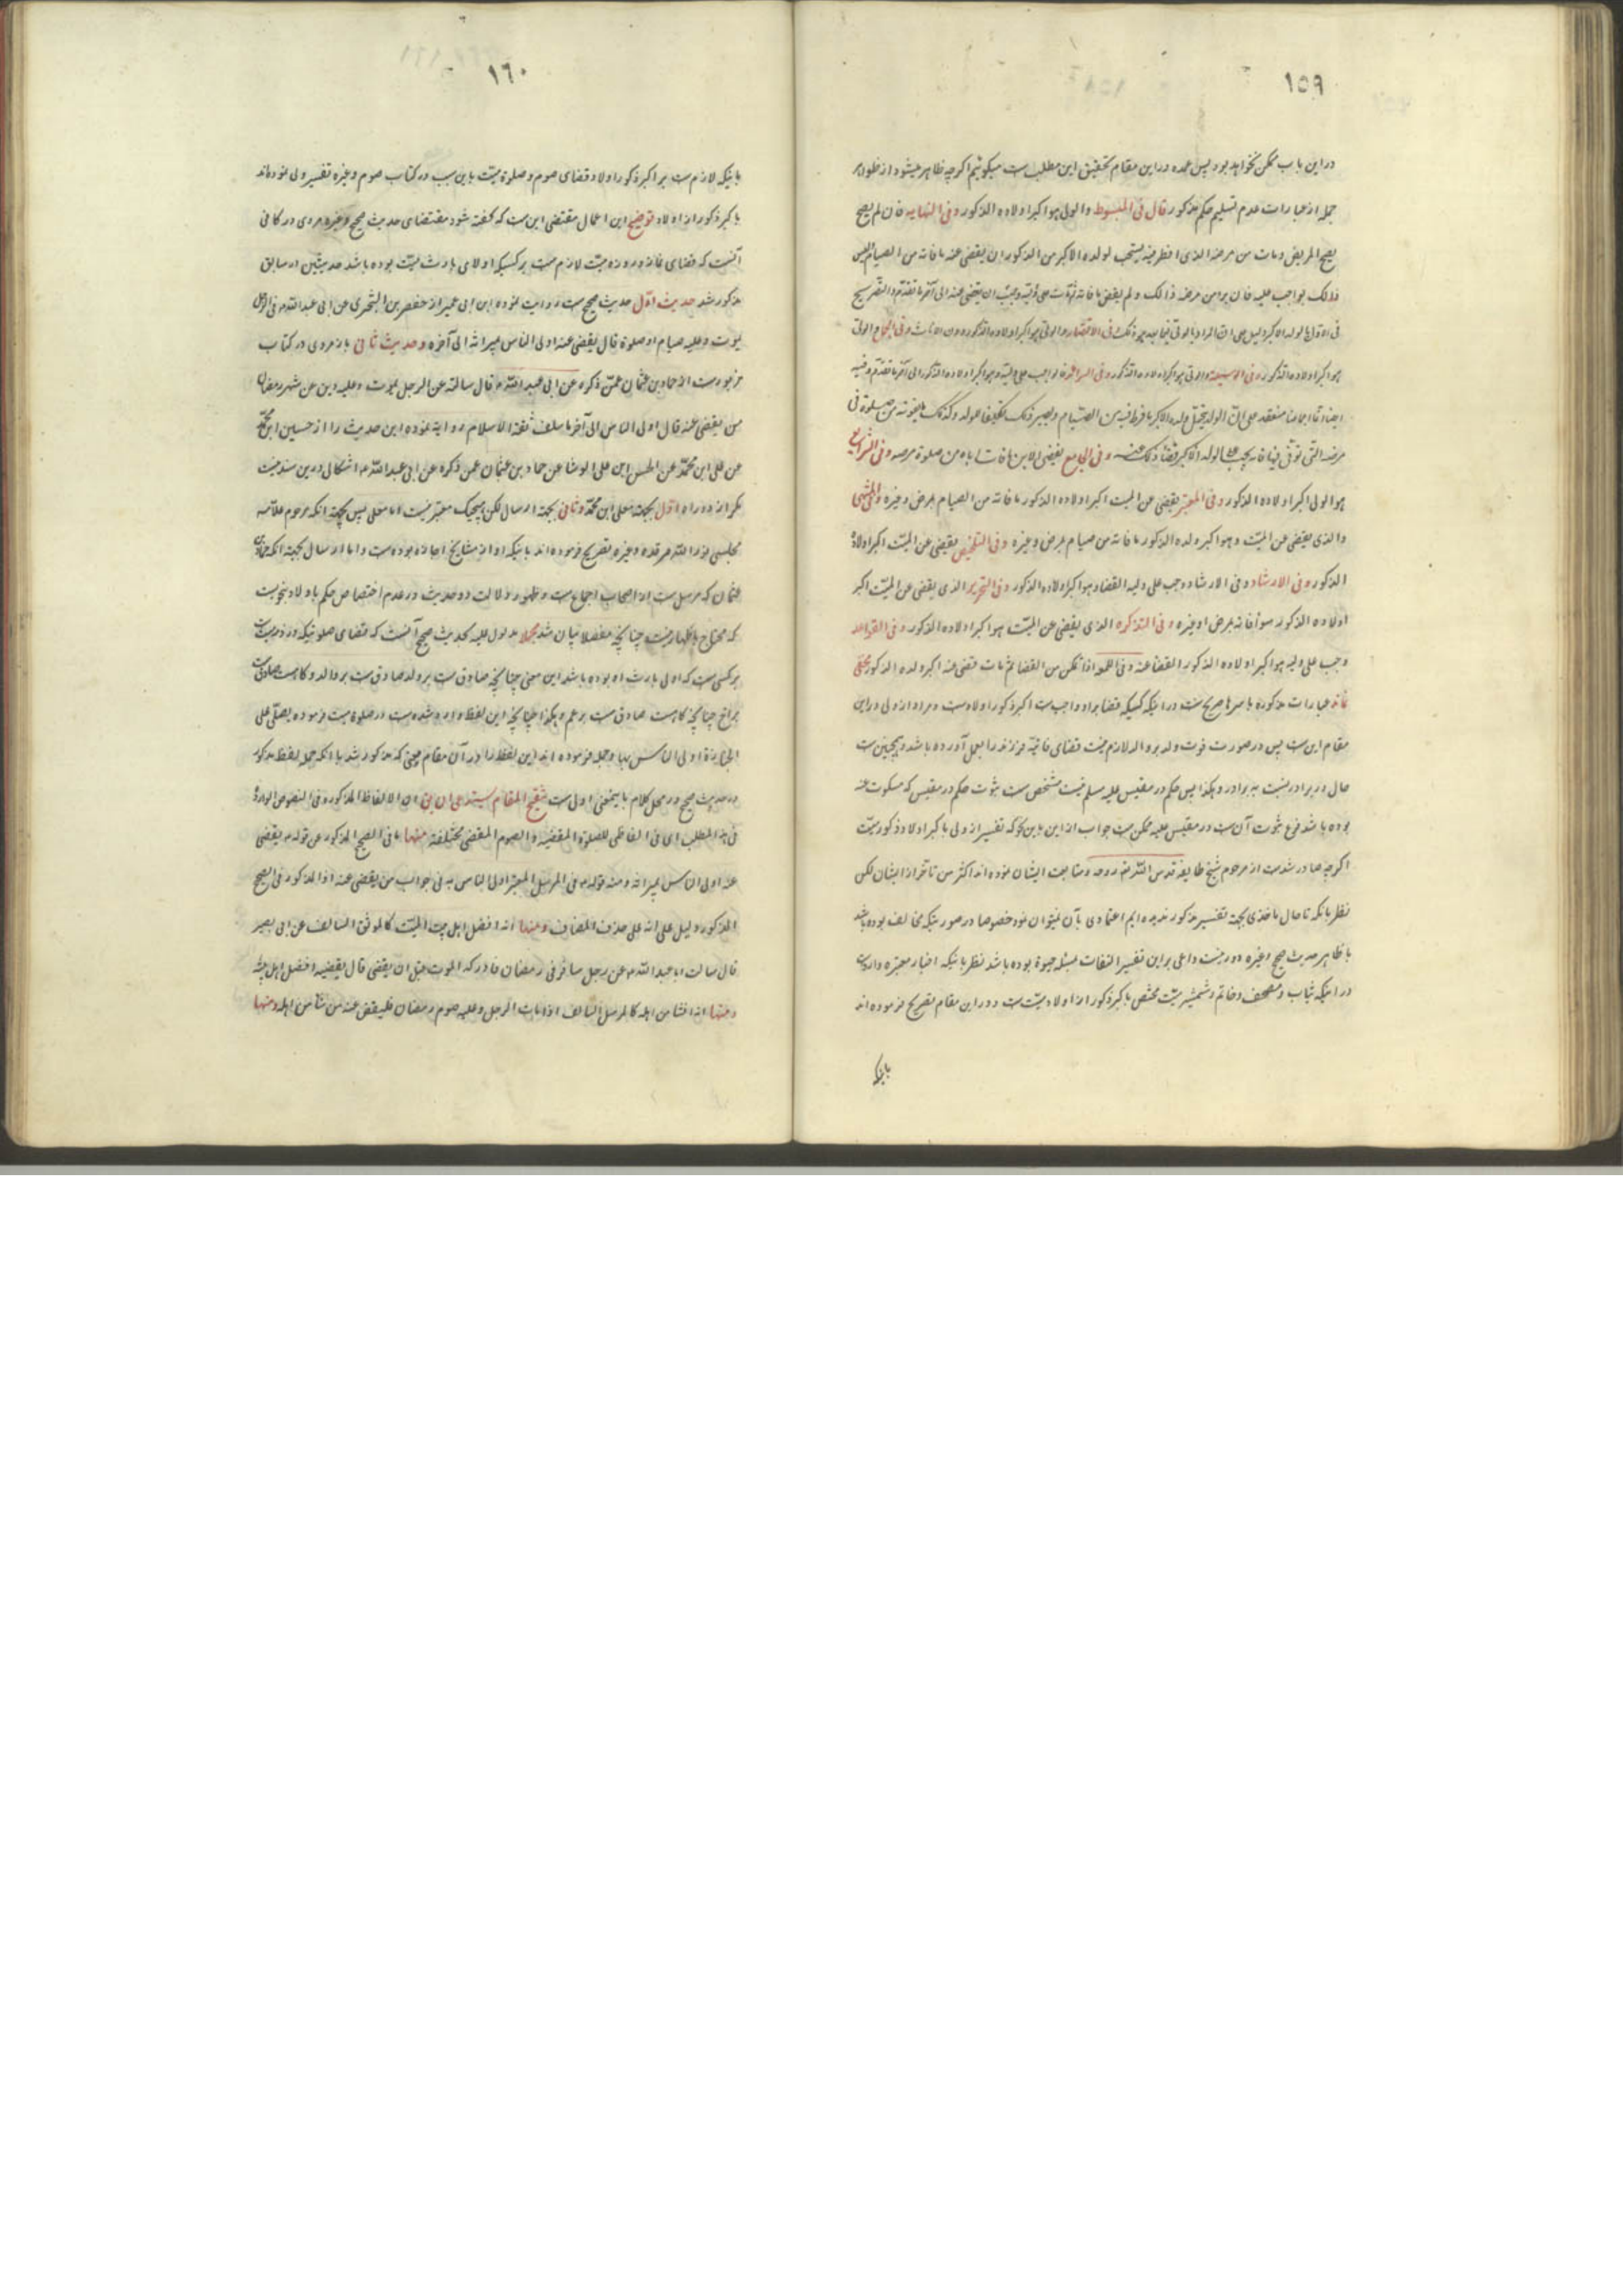 ١٥٩
در این باب ممکن نخواهد بود پس عمده در این مقام تحقیق این مطلب است میگوئیم اگر چه ظاهر میشود از ظواهر
جمله از عبارات عدم تسلیم حکم مذکور قال فی المبسوط والولی هو اکبر اولاده الذکور وفی النهایه فان لم یصح
المریض ومات من مرضه الذی افطر فیه یستحب لولده الاکبر من الذکور ان یقضی عنه ما فاته من الصیام ولیس
ذلک بواجب علیه فان برء من مرضه ذلک ولم یقض ما فاته ثم مات وجب علی ولیه ان یقضی عنه الی آخر ما تقدم والتصریح
فی الاول بالولد الاکبر دلیل علی ان المراد بالولی فیما بعد هو ذلک وفی الاقتصاد والولی هو اکبر اولاده الذکور دون الاناث وفی الجمل الولی
هو اکبر اولاده الذکور وفی الوسیلة والولی هو اکبر اولاده الذکور وفی السرائر فالواجب علی ولیه وهو اکبر اولاده الذکور الی آخر ما تقدم وفیه
ایضا اجماعنا منعقد علی ان الولد یتحمل ولده الاکبر ما فرط فیه من الصیام ویصیر ذلک تکلیفا للولد وکذلک ما یفوته من صلوة فی
مرضه التی توفی فیها فانه یجب علی الولد الاکبر قضاء ذلک عنه وفی الجامع یقضی الابن ما فات اباه من صلوة مرضه وفی الشرایع
هو الولی اکبر اولاده الذکور وفی المعتبر یقضی عن المیت اکبر اولاده الذکور ما فاته من الصیام لمرض وغیره وفی المنتهی
والذی یقضی عن المیت وهو اکبر ولده الذکور ما فاته من صیام لمرض وغیره وفی التلخیص یقضی عن المیت اکبر اولاده
الذکور وفی الارشاد وفی الارشاد وجب علی ولیه القضاء وهو اکبر اولاده الذکور وفی التحریر الذی یقضی عن المیت اکبر
اولاده الذکور سواء فاته لمرض او غیره وفی التذکره الذی یقضی عن المیت هو اکبر اولاده الذکور وفی القواعد
وجب علی ولیه هو اکبر اولاده الذکور القضاء عنه وفی اللمعه اذا تمکن من القضا ثم مات قضی عنه اکبر ولده الذکور مخفی
نماند عبارات مذکوره باسرها صریح است در اینکه کسیکه قضا بر او واجب است اکبر ذکور اولادست ومراد از ولی در این
مقام این ست پس در صورت فوت ولد بر والد لازم نیست قضای فائتۀ فرزند را بعمل آورده باشد وهمچنین ست
حال در برادر نسبت به برادر وهکذا پس حکم در مقیس علیه مسلم نیست مشخص ست ثبوت حکم در مقیس که مسکوت عنه
بوده باشد فرع ثبوت آن ست در مقیس علیه ممکن ست جواب از این باین نحو که تفسیر از ولی باکبر اولاد ذکور میت
اگر چه صادر شده ست از مرحوم شیخ طایفه قدس الله تعالی روحه ومتابعت ایشان نموده اند اکثر من تاخر از ایشان لکن
نظر بانکه تا حال ماخذی بجهة تفسیر مذکور ندیده ایم اعتمادی بآن نمیتوان نمود خصوصا در صورتیکه مخالف بوده باشد
با ظاهر حدیث صحیح وغیره دور نیست داعی بر این تفسیر التفات بمسئله حبوة بوده باشد نظر باینکه اخبار معتبره وارد ست
در اینکه ثیاب ومصحف وخاتم وشمشیر میت مختص باکبر ذکور از اولاد میت ست ودر این مقام تصریح فرموده اند
باینکه
١٦٠
باینکه لازم ست بر اکبر ذکور اولاد قضای صوم وصلوة میت باین سبب در کتاب صوم وغیره تفسیر ولی نموده اند
باکبر ذکور از اولاد توضیح این اجمال مقتضی این ست که گفته شود مقتضای حدیث صحیح وغیره مروی در کافی
آنست که قضای نماز وروزه میت لازم ست بر کسیکه اولای بارث میت بوده باشد حدیثین در سابق
مذکور شد حدیث اول حدیث صحیح ست روایت نموده ابن ابی عمیر از حفص بن البختری عن ابی عبد الله ع فی الرجل
یموت وعلیه صیام او صلوة قال یقضی عنه اولی الناس بمیراثه الی آخره وحدیث ثانی باز مروی در کتاب
مزبور ست از حماد بن عثمان عمن ذکره عن ابی عبد الله ع قال سالته عن الرجل یموت وعلیه دین من شهر رمضان
من یقضی عنه قال اولی الناس الی آخر ما سلف ثقة الاسلام روایة نموده این حدیث را از حسین ابن محمد
عن معلی ابن محمد عن الحسن ابن علی الوشا عن حماد بن عثمان عمن ذکره عن ابی عبد الله ع اشکالی در این سند نیست
مگر از دو راه اول بجهة معلی ابن محمد وثانی بجهة ارسال لکن هیچیک معتبر نیست اما معلی پس بجهة انکه مرحوم علامه
مجلسی نور الله مرقده وغیره تصریح فرموده اند باینکه او از مشایخ اجازه بوده ست واما ارسال بجهة انکه حماد بن
عثمان که مرسل ست از اصحاب اجماع ست وظهور دلالت دو حدیث در عدم اختصاص حکم باولاد بنحویست
که محتاج باظهار نیست چنانچه مفصلا بیان شد مجملا مدلول علیه بحدیث صحیح آنست که قضای صلوتیکه در ذمه میت
بر کسی ست که اولی بارث او بوده باشد این معنی چنانچه صادق ست بر ولد صادق ست بر والد وکما هست صادق ست
بر اخ چنانچه گاهست صادق ست بر عم وهکذا چنانچه این لفظ وارد شده ست در صلوة میت فرموده یصلی علی
الجنازة اولی الناس بها وحمل فرموده اند این لفظ را در آن مقام بمعنی که مذکور شد با انکه حمل لفظ مذکور
در حدیث صحیح در محل کلام باینمعنی اولی ست تنقیح المقام یستدعی ان یق ان الالفاظ المذکورة فی النصوص الواردة
فی هذا المطلب ای فی القاضی للصلوة المقضیه والصوم المقضی مختلفة منها ما فی الصحیح المذکور من قوله ع یقضی
عنه اولی الناس بمیراثه ومنه قوله ع فی المرسل المعتبر اولی الناس به فی جواب من یقضی عنه اذ المذکور فی الصحیح
المذکور دلیل علی انه علی حذف المضاف ومنها انه افضل اهل بیت المیت کالموثق السالف عن ابی بصیر
قال سالت ابا عبد الله ع عن رجل سافر فی رمضان فادرکه الموت قبل ان یقضی قال یقضیه افضل اهل بیته
ومنها انه من شاء من اهله کالمرسل السالف اذا مات الرجل وعلیه صوم رمضان فلیقض عنه من شاء من اهله ومنها